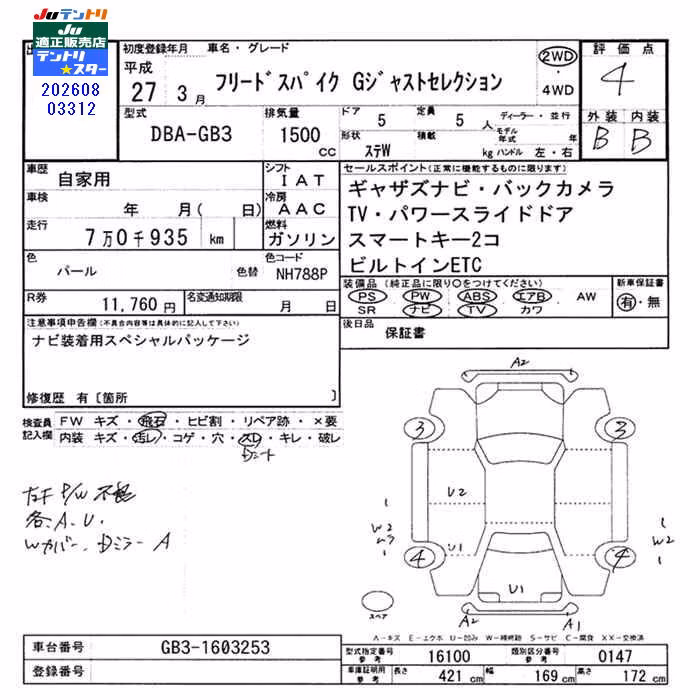 JUテントリ JUテントリ
適正販売店
テントリ
★スター
202608
03312
初度登録年月 車名・グレード
平成
27 3月
フリードスパイク Gジャストセレクション
2WD
・
4WD
評価点
4
外装 内装
B B
型式
DBA-GB3
排気量
1500 CC
ドア 5
定員 5 人
ディーラー・並行
形状 ステW
積載 kg
モデル年式 年式
ハンドル 左・右
車歴
自家用
シフト
IAT
車検
年 月( 日)
冷房
AAC
走行
7万0千935 km
燃料
ガソリン
色
パール 色替
色コード
NH788P
R券
11,760円
名変通知期限
月 日
セールスポイント(正常に機能するものに限ります)
ギャザズナビ・バックカメラ
TV・パワースライドドア
スマートキー2コ
ビルトインETC
装備品(純正品に限り○をつけてください)
PS ・ PW ・ ABS ・ エアB ・ AW
SR ナビ ・ TV ・ カワ
新車保証書
有・無
後日品
保証書
注意事項申告欄(不具合内容等は具体的に記入して下さい)
ナビ装着用スペシャルパッケージ
修復歴 有〔箇所 〕
検査員
記入欄
FW キズ・飛石・ヒビ割・リペア跡・×要
内装 キズ・汚レ・コゲ・穴・スレ・キレ・破レ
Dシート
P/W 不
各A.U.
Wカバー、Dミラー A
A2
3 3
U2
W2
ムラ
U1
W2
4 4
U1
A2 A1
スペア
A-キズ E-エクボ U-凹み W-補修跡 S-サビ C-腐食 XX-交換済
車台番号 GB3-1603253
登録番号
型式指定番号
参考
16100
類別区分番号
参考
0147
車庫証明用
参考
長さ 421 cm 幅 169 cm 高さ 172 cm